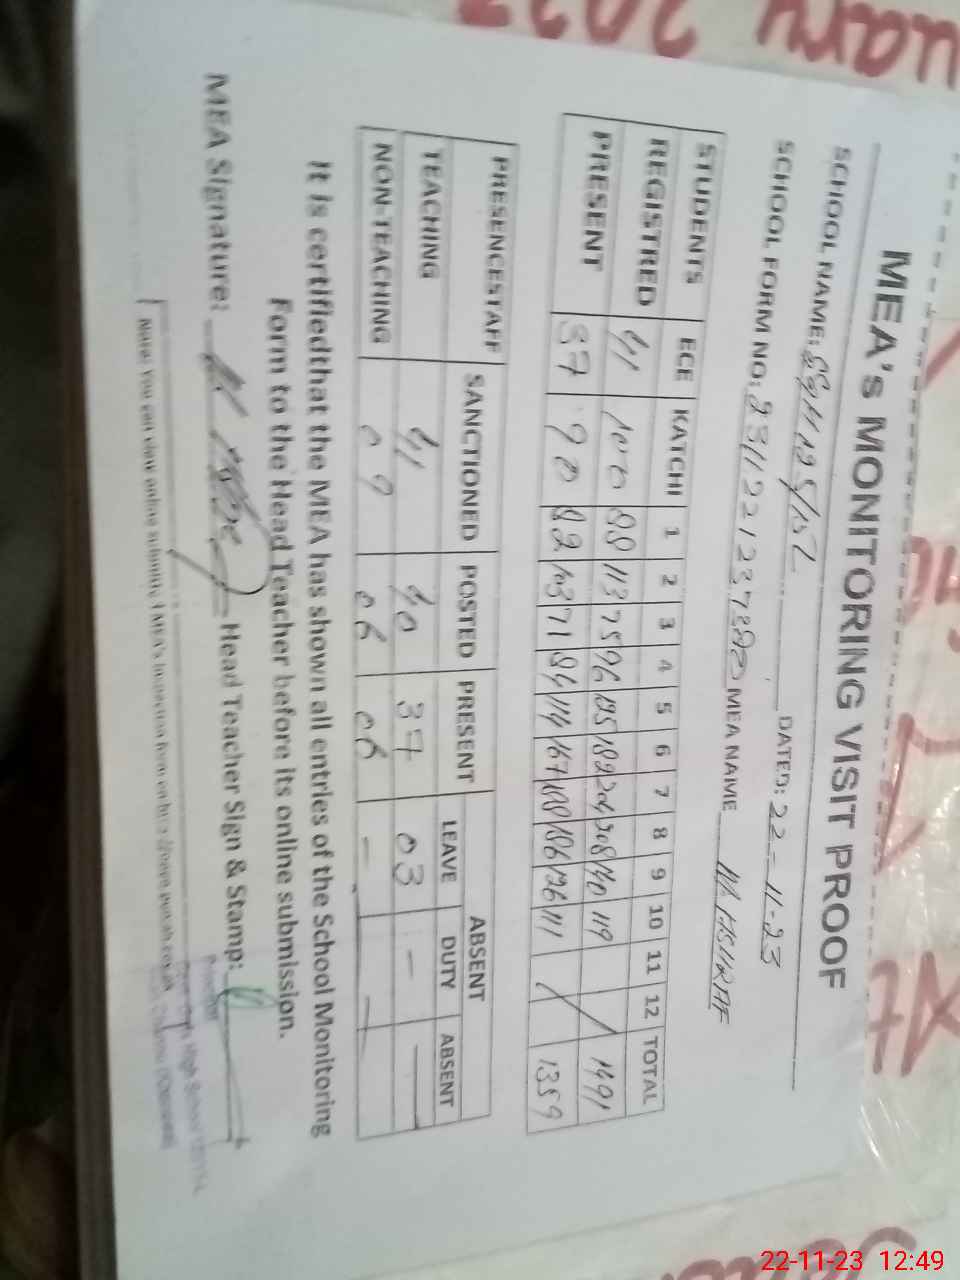 MEA's MONITORING VISIT PROOF
SCHOOL NAME: 125/15L DATED: 22-11-23
SCHOOL FORM NO: MEA NAME M ASHRAF
STUDENTS ECE KATCHI 1 2 3 4 5 6 7 8 9 10 11 12 TOTAL
REGISTRED 41 100 88 113 75 96 125 182 204 208 140 119 1491
PRESENT 37 90 82 103 71 84 114 167 188 186 126 111 1359
PRESENCESTAFF SANCTIONED POSTED PRESENT ABSENT
LEAVE DUTY ABSENT
TEACHING 41 40 37 03 - -
NON-TEACHING 09 06 06 - -
It is certifiedthat the MEA has shown all entries of the School Monitoring
Form to the Head Teacher before its online submission.
MEA Signature: Head Teacher Sign & Stamp:
Note: You can view online submitted MEA's Inspection form on
High School
22-11-23 12:49